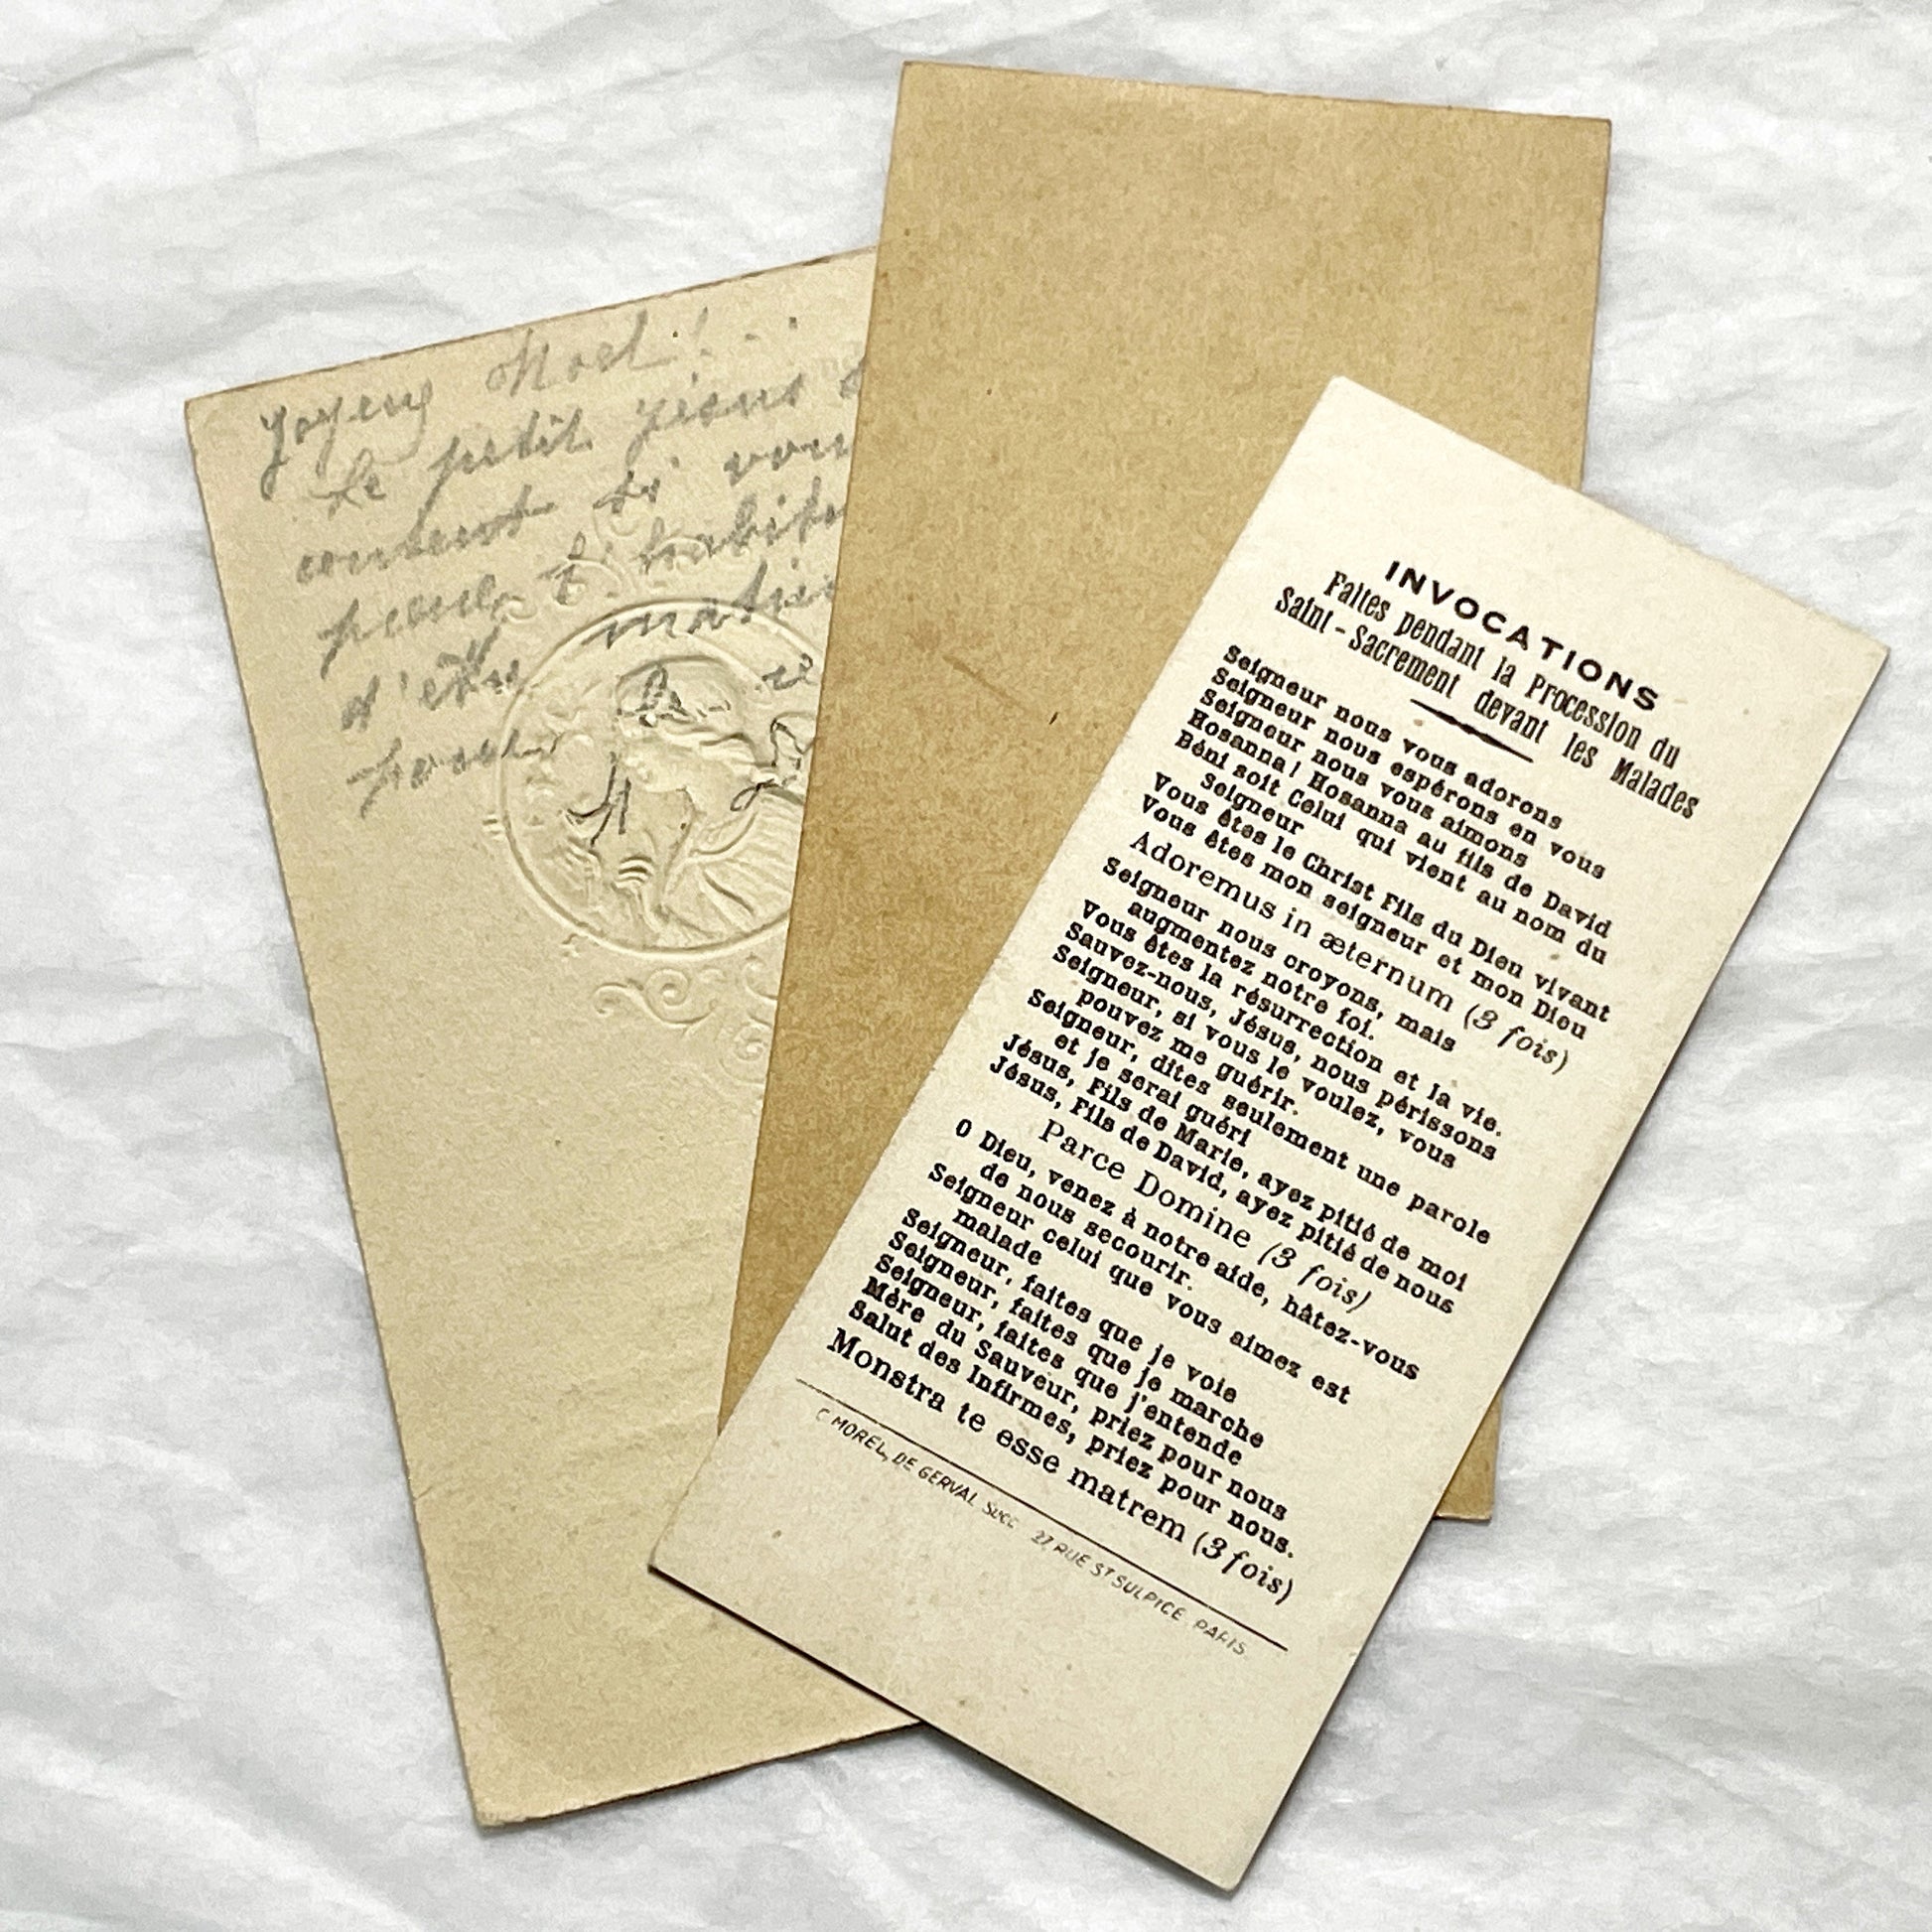 Joyeux Noël !..
Le petit Jésus
content si
prenez l'habitu
d'être matin
INVOCATIONS
Faites pendant la Procession du
Saint-Sacrement devant les Malades
Seigneur nous vous adorons
Seigneur nous espérons en vous
Seigneur nous vous aimons
Hosanna! Hosanna au fils de David
Béni soit Celui qui vient au nom du
Seigneur
Vous êtes le Christ Fils du Dieu vivant
Vous êtes mon seigneur et mon Dieu
Adoremus in æternum (3 fois)
Seigneur nous croyons, mais
augmentez notre foi.
Vous êtes la résurrection et la vie.
Sauvez-nous, Jésus, nous périssons
Seigneur, si vous le voulez, vous
pouvez me guérir.
Seigneur, dites seulement une parole
et je serai guéri
Jésus, Fils de Marie, ayez pitié de moi
Jésus, Fils de David, ayez pitié de nous
Parce Domine (3 fois)
O Dieu, venez à notre aide, hâtez-vous
de nous secourir.
Seigneur celui que vous aimez est
malade
Seigneur, faites que je voie
Seigneur, faites que je marche
Seigneur, faites que j'entende
Mère du Sauveur, priez pour nous
Salut des Infirmes, priez pour nous.
Monstra te esse matrem (3 fois)
C MOREL, DE GERVAL SUCC 27, RUE ST SULPICE PARIS